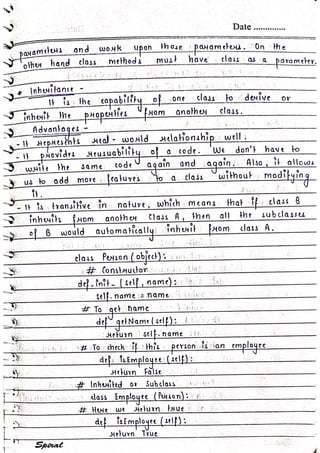 Date ..............
parameters and work upon those parameters. On the
other hand class methods must have class as a parameter.
# Inheritance -
It is the capability of one class to derive or
inherit the properties from another class.
Advantages -
- It represents real - world relationship well.
- It provides reusability of a code. We don't have to
write the same code again and again. Also, it allows
us to add more features to a class without modifying
it.
- It is transitive in nature, which means that if class B
inherits from another class A, then all the subclasses
of B would automatically inherit from class A.
class Person (object):
# Constructor
def _init_ (self, name):
self.name = name
# To get name
def getName (self):
return self.name
# To check if this person is an employee
def isEmployee (self):
return False
# Inherited or Subclass
class Employee (Person):
# Here we return true
def isEmployee (self):
return True
Spiral